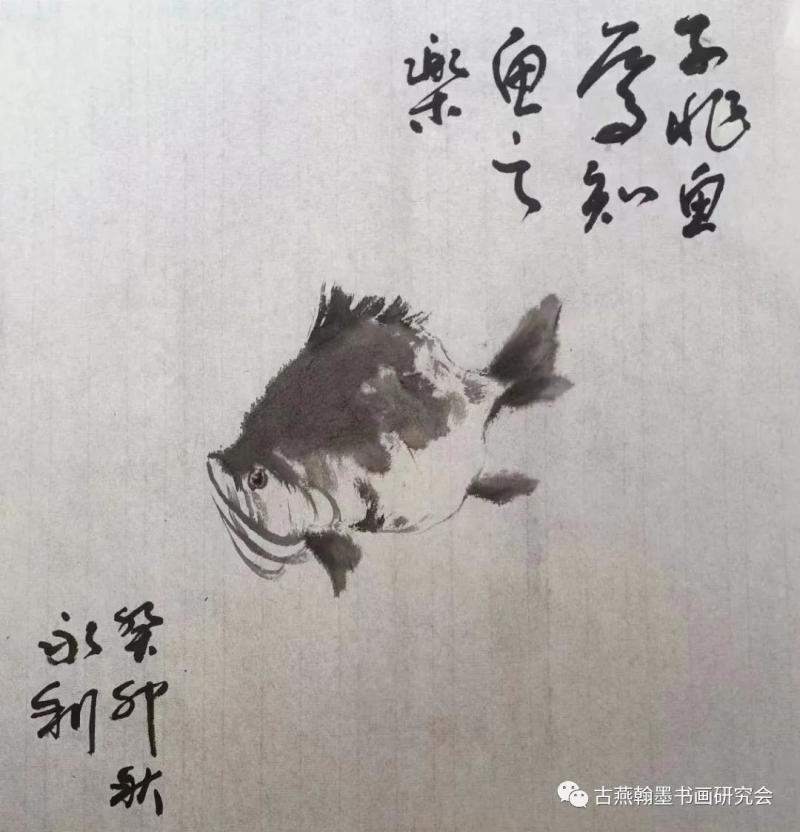 子非鱼
焉知
鱼之
樂
癸卯秋
永利
古燕翰墨书画研究会